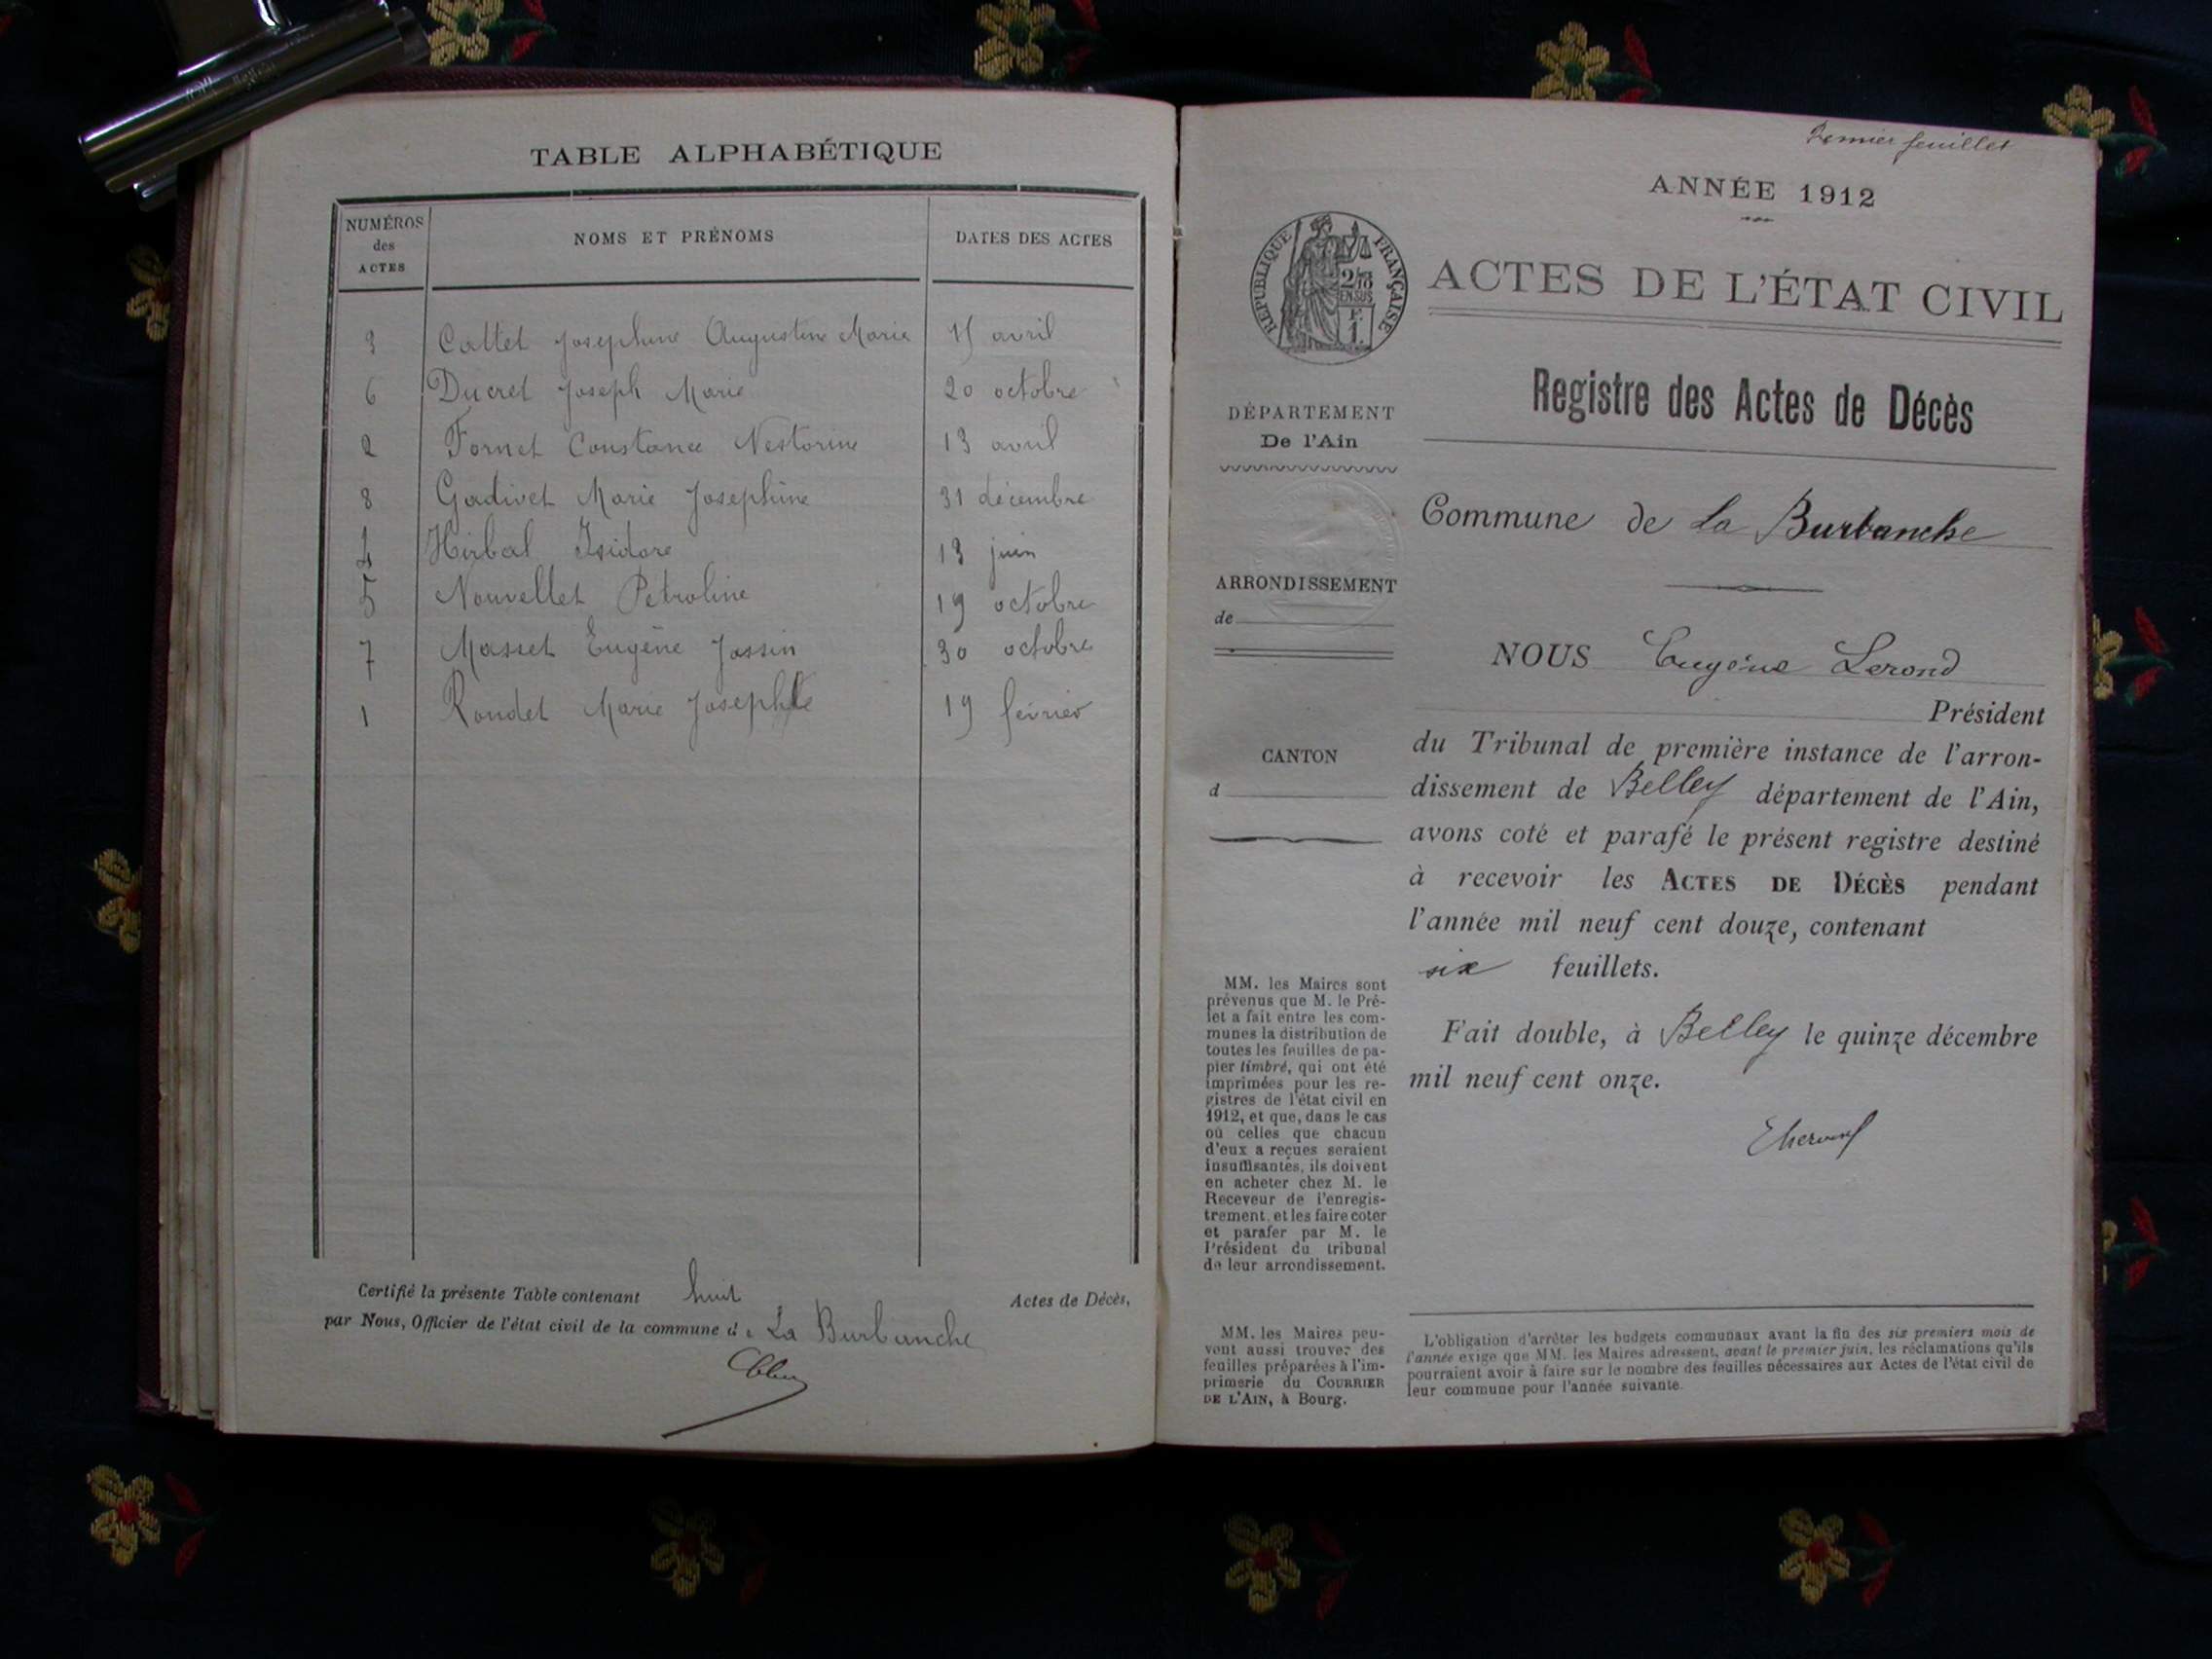 TABLE ALPHABÉTIQUE
NUMÉROS des ACTES
NOMS ET PRÉNOMS
DATES DES ACTES
3 Cattet Josephine Augustine Marie 15 avril
6 Ducret Joseph Marie 20 octobre
2 Fornet Constance Nestorine 13 avril
8 Gadivet Marie Josephine 31 décembre
4 Hirbal Isidore 13 juin
5 Nouvellet Petroline 19 octobre
7 Masset Eugène Jossin 30 octobre
1 Rondet Marie Josephte 19 février
Certifié la présente Table contenant huit Actes de Décès,
par Nous, Officier de l'état civil de la commune de La Burbanche
Premier feuillet
ANNÉE 1912
RÉPUBLIQUE FRANÇAISE
2/10 EN SUS
F. 1.
ACTES DE L'ÉTAT CIVIL
Registre des Actes de Décès
DÉPARTEMENT
De l'Ain
Commune de La Burbanche
ARRONDISSEMENT
de
NOUS Eugène Lerond
Président
CANTON
d
du Tribunal de première instance de l'arron-
dissement de Belley département de l'Ain,
avons coté et parafé le présent registre destiné
à recevoir les ACTES DE DÉCÈS pendant
l'année mil neuf cent douze, contenant
six feuillets.
Fait double, à Belley le quinze décembre
mil neuf cent onze.
MM. les Maires sont
prévenus que M. le Pré-
fet a fait entre les com-
munes la distribution de
toutes les feuilles de pa-
pier timbré, qui ont été
imprimées pour les re-
gistres de l'état civil en
1912, et que, dans le cas
où celles que chacun
d'eux a reçues seraient
insuffisantes, ils doivent
en acheter chez M. le
Receveur de l'enregis-
trement, et les faire coter
et parafer par M. le
Président du tribunal
de leur arrondissement.
MM. les Maires peu-
vent aussi trouver des
feuilles préparées à l'im-
primerie du COURRIER
DE L'AIN, à Bourg.
L'obligation d'arrêter les budgets communaux avant la fin des six premiers mois de
l'année exige que MM. les Maires adressent, avant le premier juin, les réclamations qu'ils
pourraient avoir à faire sur le nombre des feuilles nécessaires aux Actes de l'état civil de
leur commune pour l'année suivante.